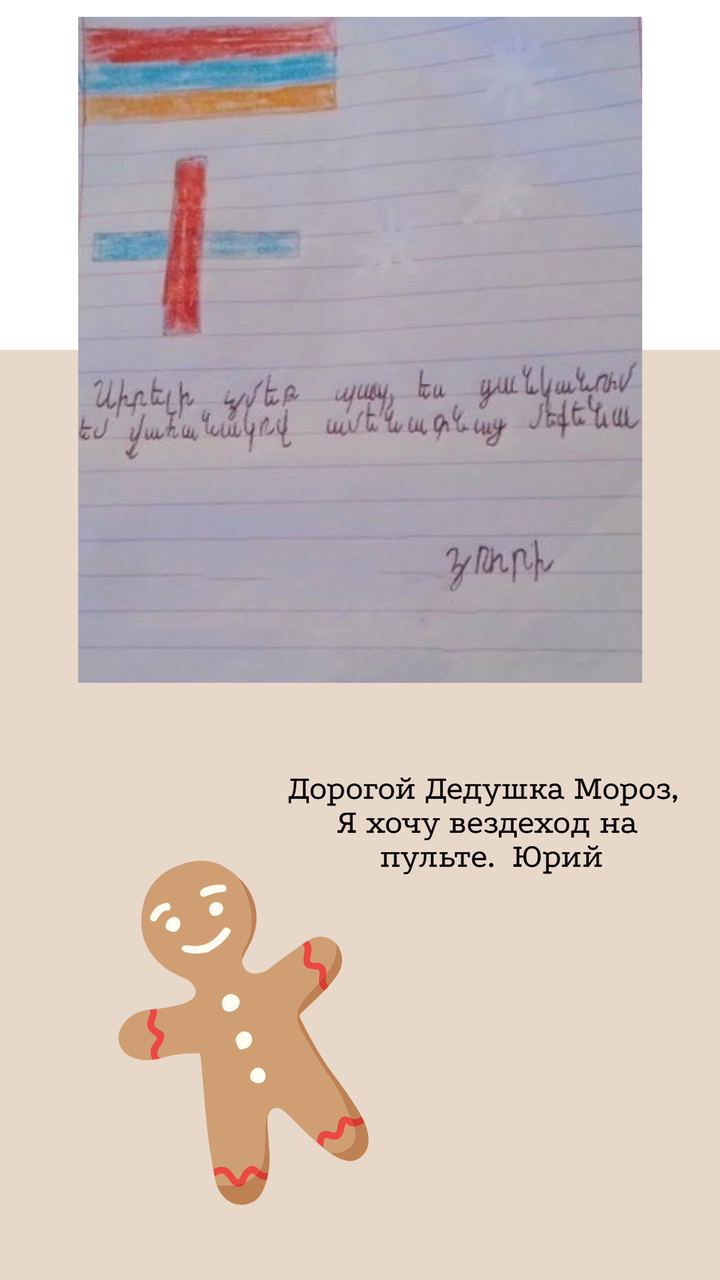 Սիրելի ձմեռ պապ, ես ցանկանում
եմ վահանակով ամենագնաց մեքենա
Յուրի
Дорогой Дедушка Мороз,
Я хочу вездеход на
пульте. Юрий